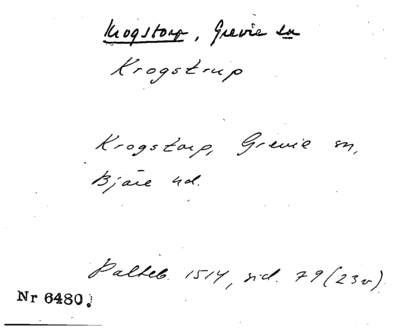 Krogstorp, Grevie sn
Krogstrup
Krogstorp, Grevie sn,
Bjäre hd.
Palteb. 1514, sid. 79 (23v)
Nr 6480.